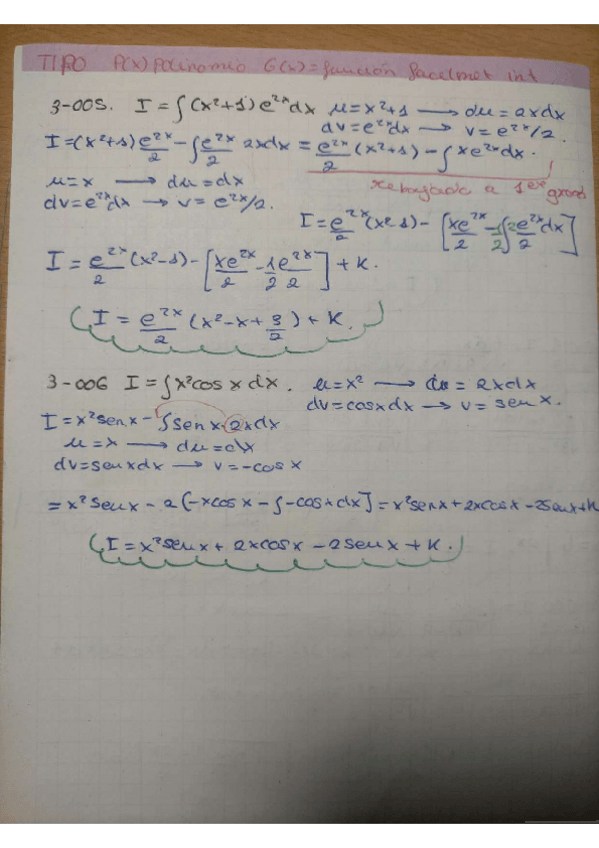 TIPO P(x) polinomio G(x) = función facelmet int
3-005. I = ∫(x²+1)e²ˣdx u=x²+1 → du=2xdx
dv=e²ˣdx → v=e²ˣ/2.
I=(x²+1)e²ˣ/2 - ∫e²ˣ/2 2xdx = e²ˣ/2 (x²+1) - ∫xe²ˣdx.
u=x → du=dx
rebajada a 1er grado
dv=e²ˣdx → v= e²ˣ/2.
I=e²ˣ/2 (x²-1) - [xe²ˣ/2 - 1/2∫e²ˣdx/2]
I = e²ˣ/2 (x²-1) - [xe²ˣ/2 - 1/2 e²ˣ/2] + K.
(I = e²ˣ/2 (x²-x+3/2) + K.)
3-006 I=∫x²cos x dx. u=x² → du = 2xdx
dv=cosxdx → v= senx.
I=x²senx - ∫senx·2xdx
u=x → du=dx
dv=senxdx → v=-cosx
=x²senx - 2[-xcosx - ∫-cosxdx] = x²senx+2xcosx-2senx+K
(I=x²senx+2xcosx-2senx+K.)